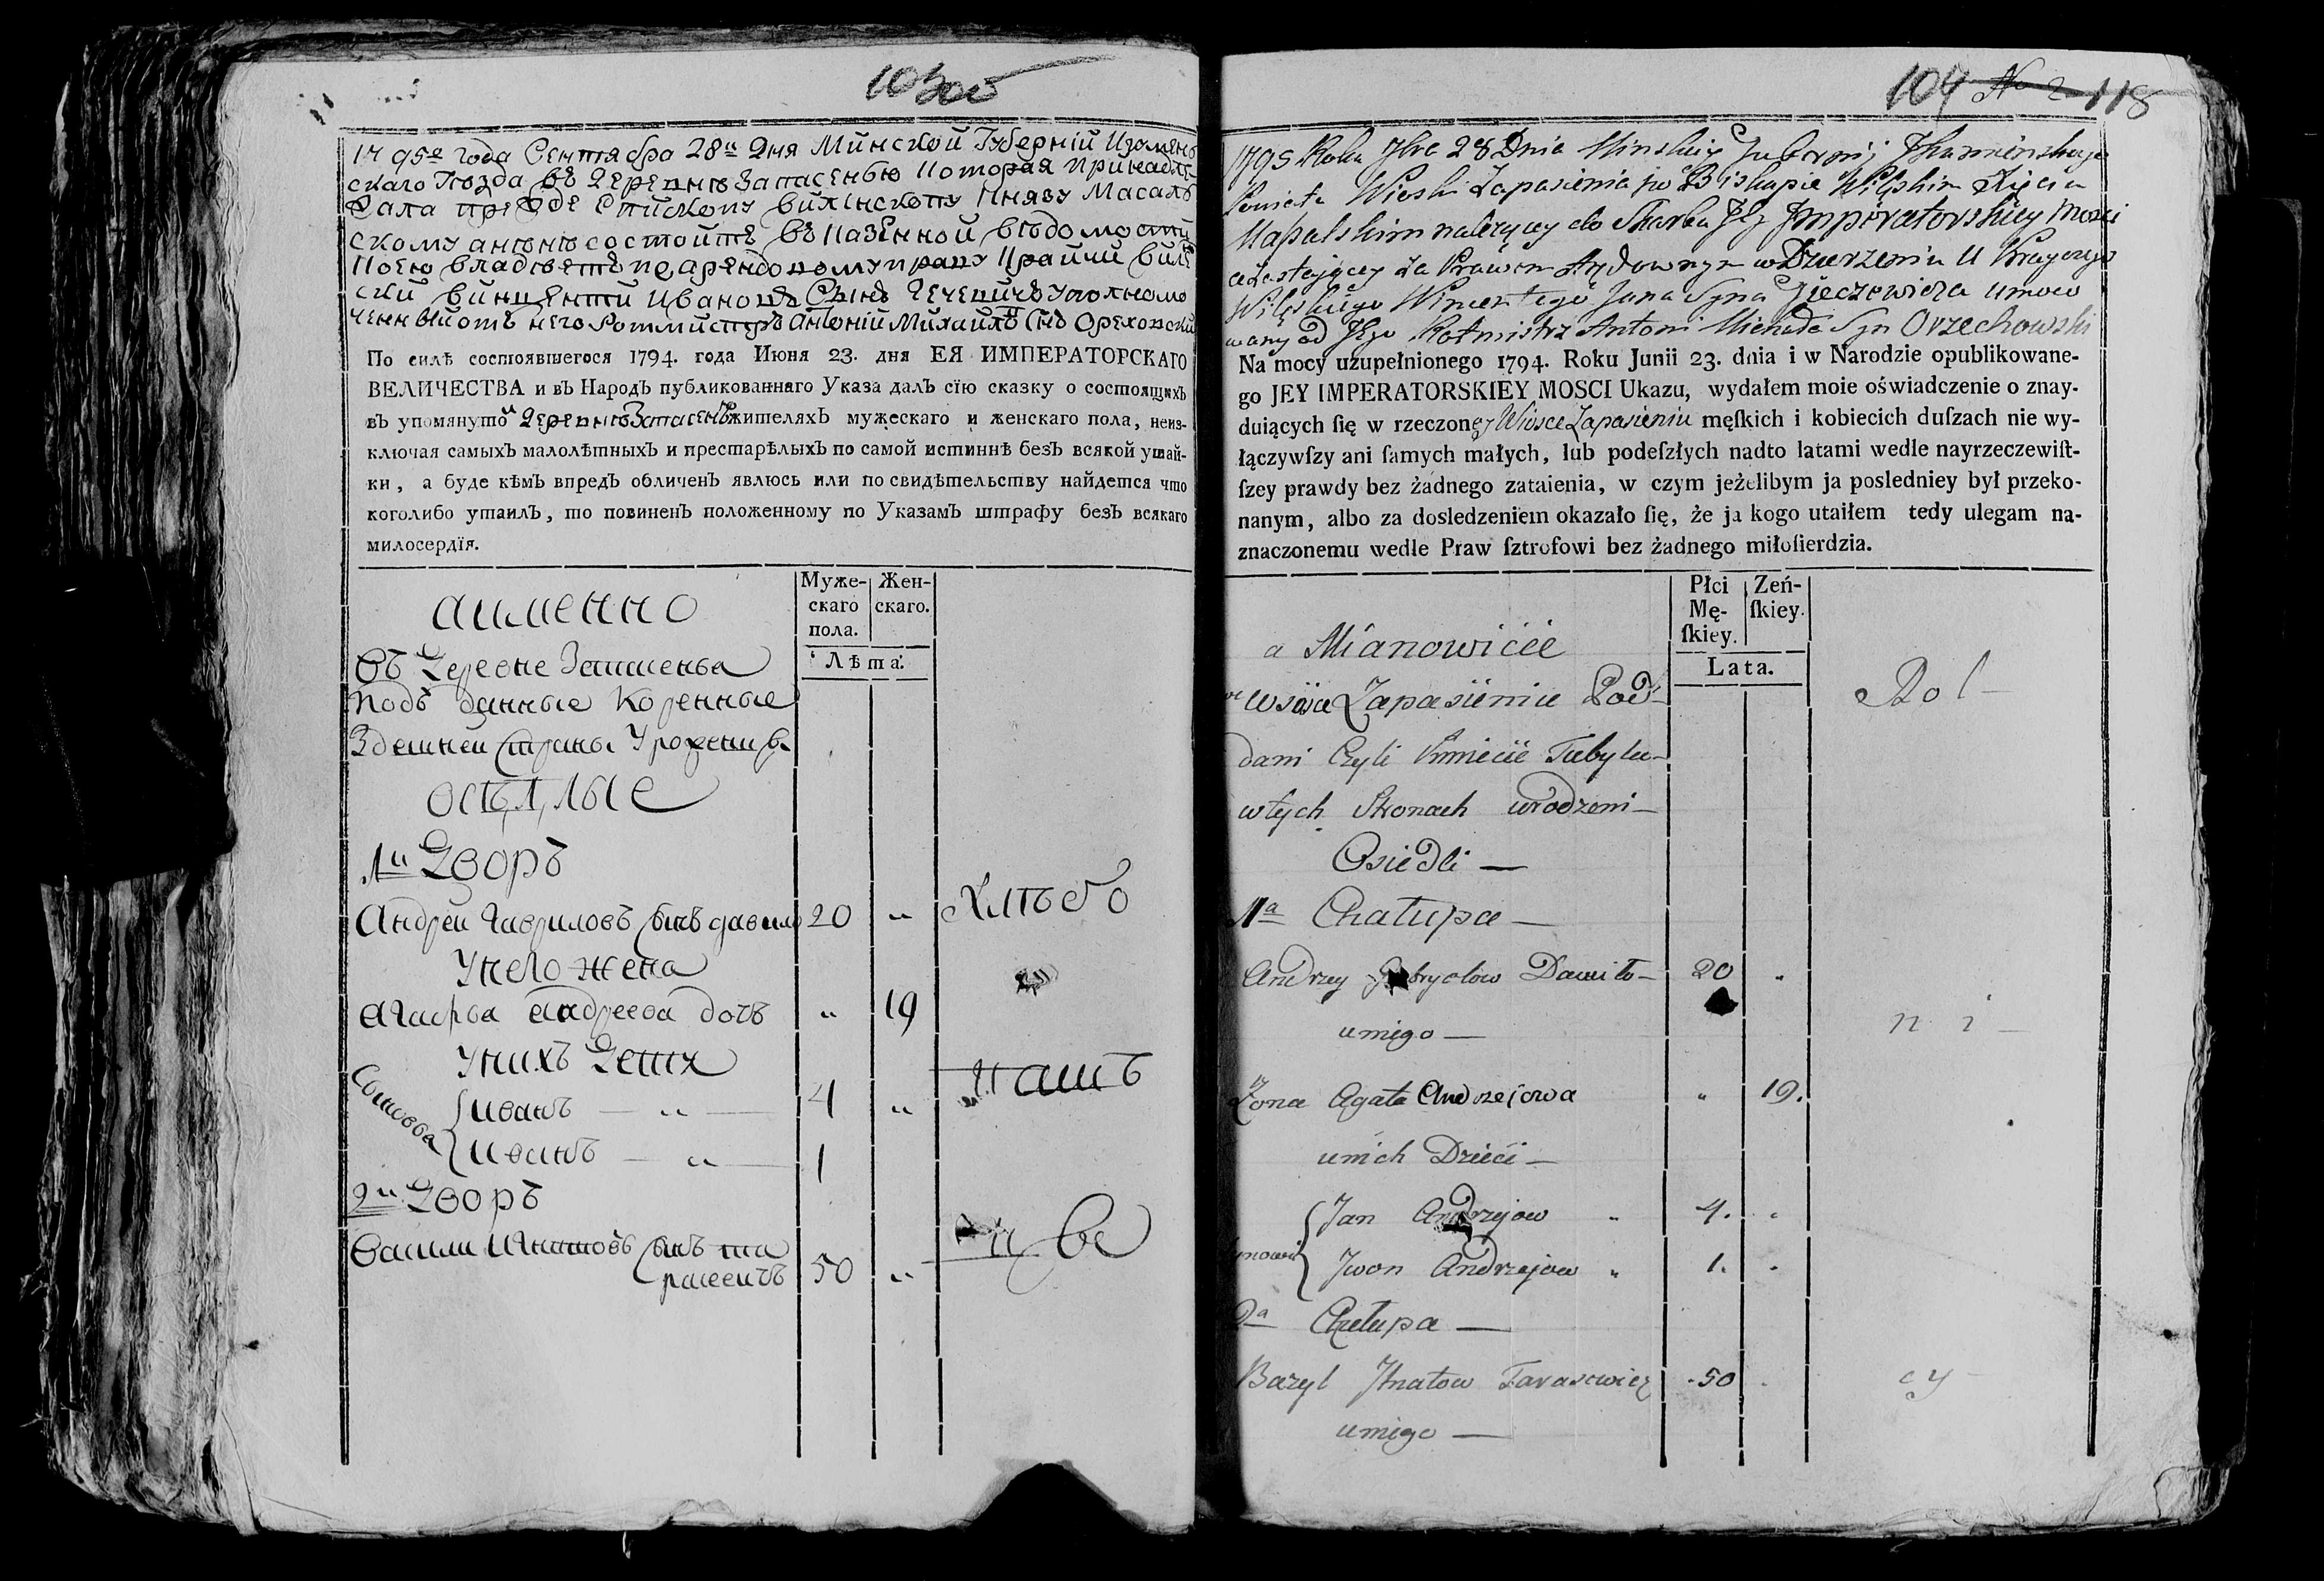 104 No 2 118
1795е года Сентября 28и Дня Минской Губерніи Игуменъ
скаго Поезда въ Деревню Запасенью Которая принадле
жала прежде Епископу Виленскому Князу Масалъ
скому анынѣ состоитъ въ Казенной вѣдомости
Коею владѣетъ по арендовому праву Крайчій Виле
скій Винцентій Ивановъ Сынъ Гечевичъ Уполномо
ченный отъ него Ротмистръ Антоній Михайлъ Снъ Ореховскій
По силѣ состоявшегося 1794. года Июня 23. дня ЕЯ ИМПЕРАТОРСКАГО
ВЕЛИЧЕСТВА и въ Народъ публикованнаго Указа далъ сїю сказку о состоящихъ
въ упомянутой Деревнѣ Запасенье жителяхъ мужескаго и женскаго пола, неиз-
ключая самыхъ малолѣтныхъ и престарѣлыхъ по самой истиннѣ безъ всякой утай-
ки, а буде кѣмъ впредъ обличенъ явлюсь или по свидѣтельству найдется что
коголибо утаилъ, то повиненъ положенному по Указамъ штрафу безъ всякаго
милосердїя.
Муже- Жен-
скаго скаго.
пола.
Лѣта.
аименно
Въ Деревне Запасенье
Подъ данные Коренные
Здешней Страны Урожени
Оседлые
1и Дворъ
Андрей Гавриловъ Сынъ давило 20 „ Хлѣбо
У него жена
Агафья Андреева дочъ „ 19
У нихъ Дети
Сыновья
Иванъ — „ — 4 „ пашъ
Иванъ — „ — 1
2и Дворъ
Васили Игнатовъ Сынъ та
расевичъ 50 „
1795 Roku 7bra 28 Dnia Minskiey Gubernij Ihuminskiego
Powiata Wioska Zapasienia po Biskupie Wileńskim Xięciu
Masalskim należący do Skarbu Jey Imperatorskiey Mosci
a zostający za Prawem Arędownym w Dzierzeniu U Krayczego
Wileńskiego Wincentego Jana Syna Gieczewicza umoco
wany od Jego Rotmistrz Antoni Michała Syn Orzechowski
Na mocy uzupełnionego 1794. Roku Junii 23. dnia i w Narodzie opublikowane-
go JEY IMPERATORSKIEY MOSCI Ukazu, wydałem moie oświadczenie o znay-
duiących ſię w rzeczoney Wiosce Zapasieniu męſkich i kobiecich duſzach nie wy-
łączywſzy ani ſamych małych, lub podeſzłych nadto latami wedle nayrzeczewiſt-
ſzey prawdy bez żadnego zataienia, w czym jeżelibym ja posledniey był przeko-
nanym, albo za dosledzeniem okazało ſię, że ja kogo utaiłem tedy ulegam na-
znaczonemu wedle Praw ſztrofowi bez żadnego miłoſierdzia.
Płci Zeń-
Mę- ſkiey.
ſkiey.
Lata.
a Mianowicie
we wsi Zapasieniu Pod- Rol-
dani Czyli Kmiecie Tubylu-
w tych Stronach urodzeni —
Osiedli —
1a Chatupa —
Andrzey Gabryelow Dawiło — 20 „
umigo — ni —
Żona Agata Andrzejowa „ 19.
unich Dzieci —
Synowie
Jan Andrzejow „ 4. „
Jwon Andrzejow „ 1. „
2a Chatupa —
Bazyl Ihnatow Tarasewicz 50 cy
umigo —